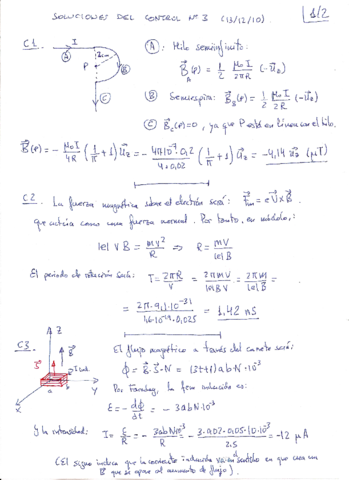 SOLUCIONES DEL CONTROL Nº 3 (13/12/10)
1/2
C1.
I
2cm
P
A
B
C
(A): Hilo semiinfinito:
B⃗_A(P) = 1/2 μ₀I/2πR (-u⃗z)
(B) Semiespira: B⃗_B(P) = 1/2 μ₀I/2R (-u⃗z)
(C) B⃗_C(P)=0, ya que P está en línea con el hilo.
B⃗(P) = - μ₀I/4R (1/π + 1) u⃗z = - 4π10⁻⁷·0,2/4·0,02 (1/π + 1) u⃗z = -4,14 u⃗z (μT)
C2. La fuerza magnética sobre el electrón será: F⃗m = e v⃗ x B⃗
que actúa como una fuerza normal. Por tanto, en módulo:
|e| v B = mv²/R ⇒ R = mv/|e|B
El periodo de rotación será: T = 2πR/v = 2πmv/|e|Bv = 2πm/|e|B
= 2π·9,1·10⁻³¹/1,6·10⁻¹⁹·0,025 = 1,42 ns
C3.
Z
B⃗
S⃗
I ind.
a
Y
X
El flujo magnético a través del carrete será:
Φ = B⃗·S⃗·N = (3t+1) ab·N·10⁻³
Por Faraday, la fem inducida es:
ε = - dΦ/dt = - 3abN·10⁻³
Y la intensidad: I = ε/R = - 3abN10⁻³/R = - 3·0,02·0,05·10·10⁻³/2.5 = -12 μA
(El signo indica que la corriente inducida va en el sentido en que crea un
B⃗ que se opone al aumento de flujo).